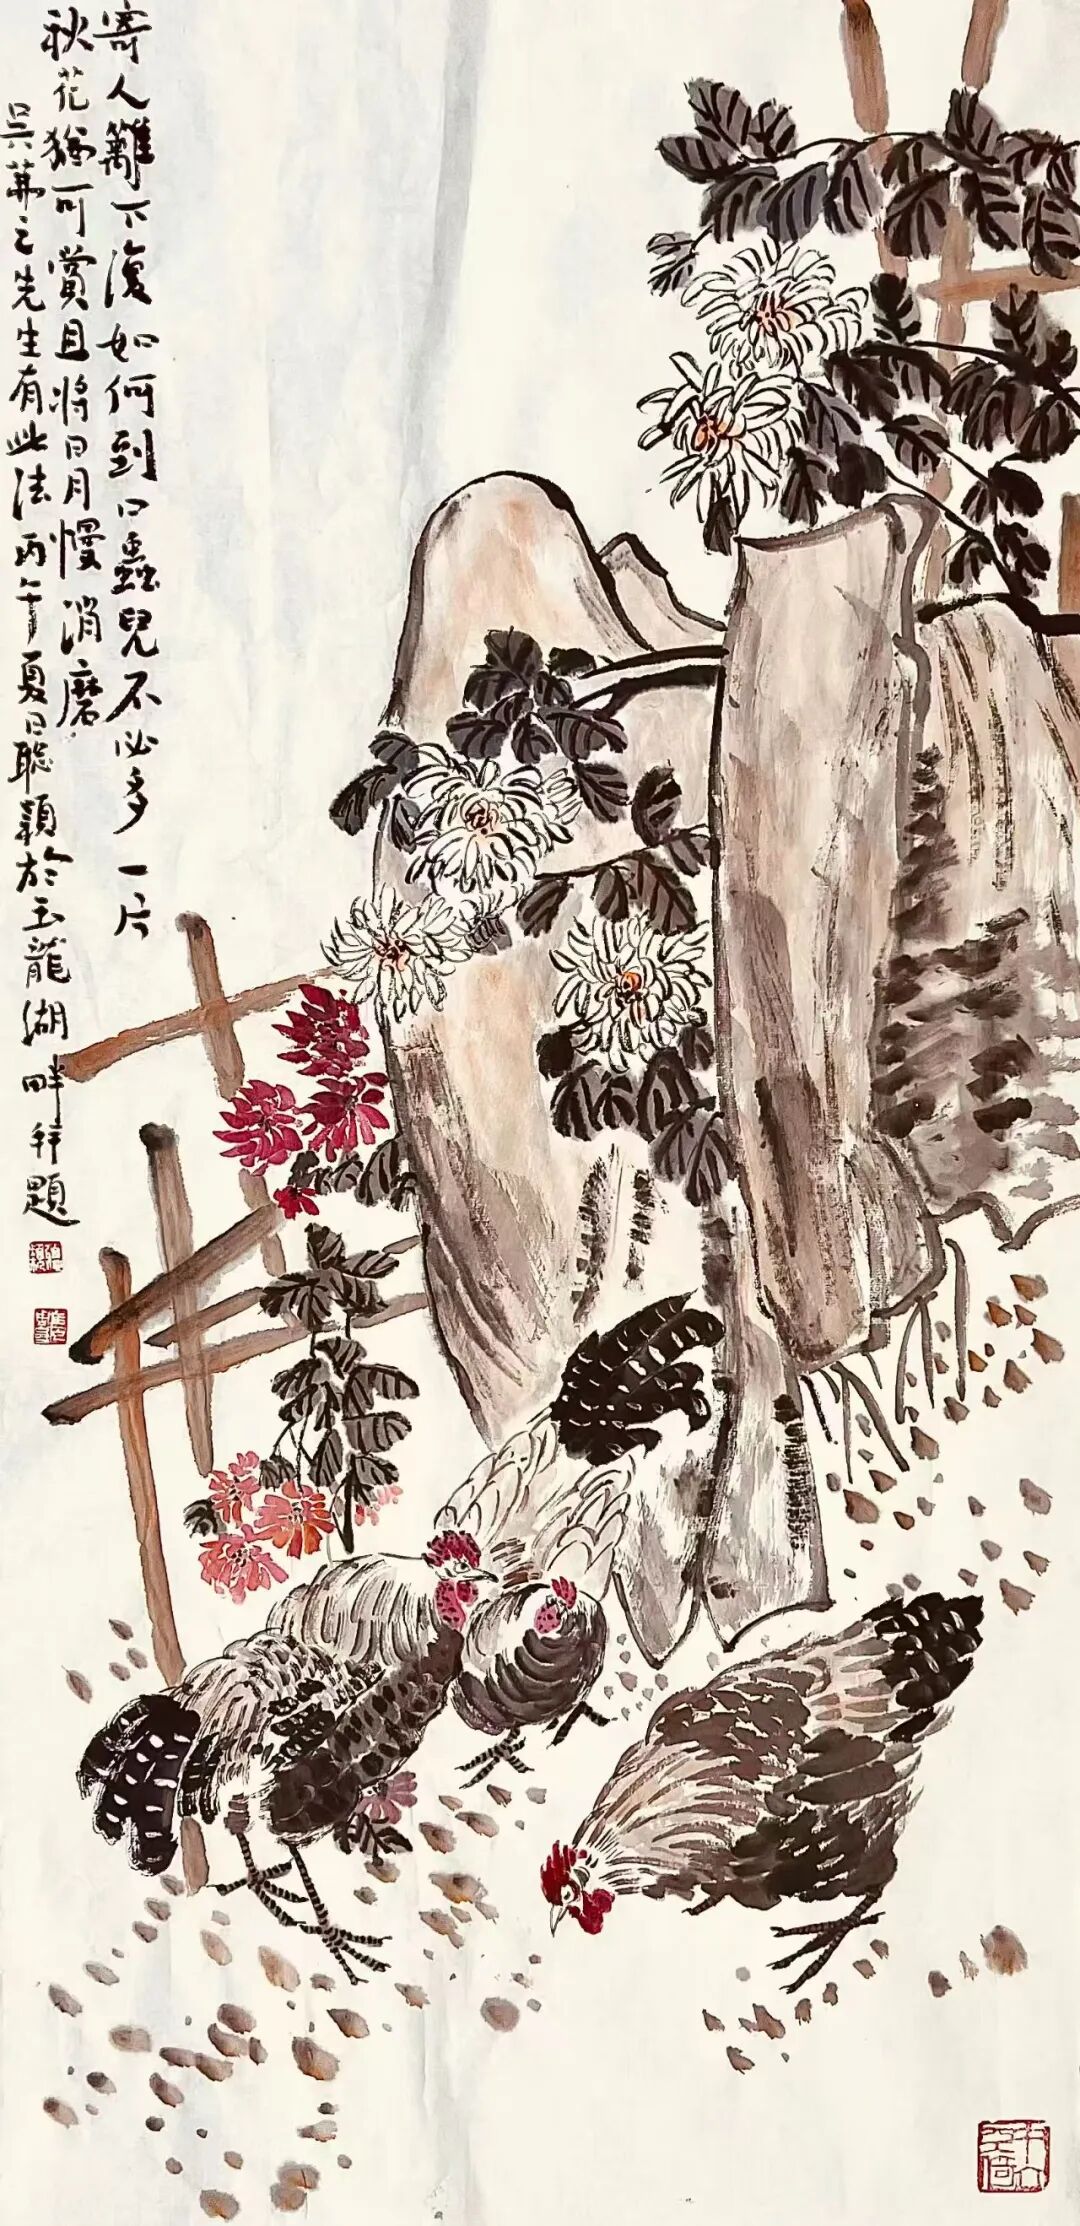 寄人籬下復如何到口蟲兒不必多一片
秋花猶可賞且將日月慢消磨
吳茀之先生有此法丙午夏日聰穎於玉龍湖畔并題